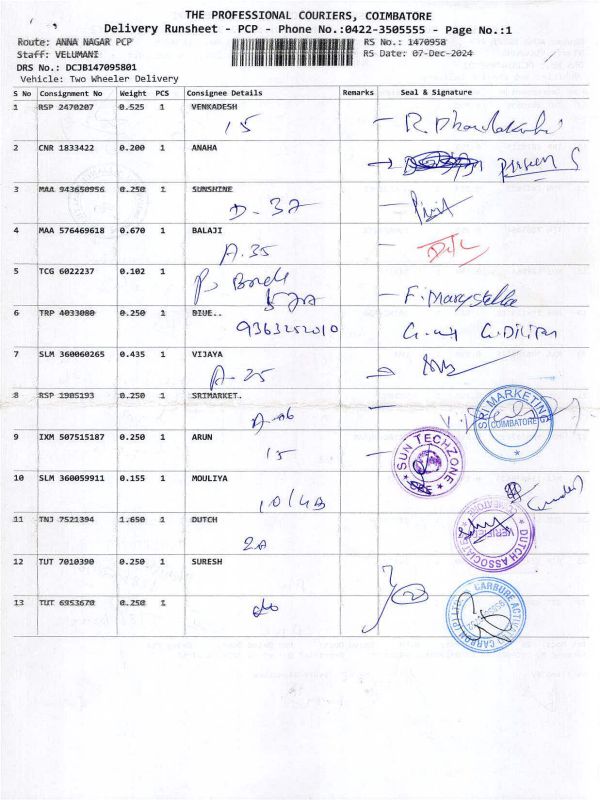 THE PROFESSIONAL COURIERS, COIMBATORE
Delivery Runsheet - PCP - Phone No.:0422-3505555 - Page No.:1
Route: ANNA NAGAR PCP
RS No.: 1470958
Staff: VELUMANI
RS Date: 07-Dec-2024
DRS No.: DCJB147095801
Vehicle: Two Wheeler Delivery
S No Consignment No Weight PCS Consignee Details Remarks Seal & Signature
1 RSP 2470207 0.525 1 VENKADESH
15
2 CNR 1833422 0.200 1 ANAHA
3 MAA 943650956 0.250 1 SUNSHINE
D-32
4 MAA 576469618 0.670 1 BALAJI
A.35
5 TCG 6022237 0.102 1
F. Marystella
6 TRP 4033080 0.250 1 BIUE..
9363252010
7 SLM 360060265 0.435 1 VIJAYA
A-25
8 RSP 1905193 0.250 1 SRIMARKET.
SRI MARKETING
COIMBATORE
9 IXM 507515187 0.250 1 ARUN
15
SUN TECHZONE
10 SLM 360059911 0.155 1 MOULIYA
10/4B
11 TNJ 7521394 1.650 1 DUTCH
2A
DUTCH ASSOCIAT
VERIFIED
12 TUT 7010390 0.250 1 SURESH
13 TUT 6953670 0.250 1
do
CARBURE ACTIV
CARBON (P) LTD